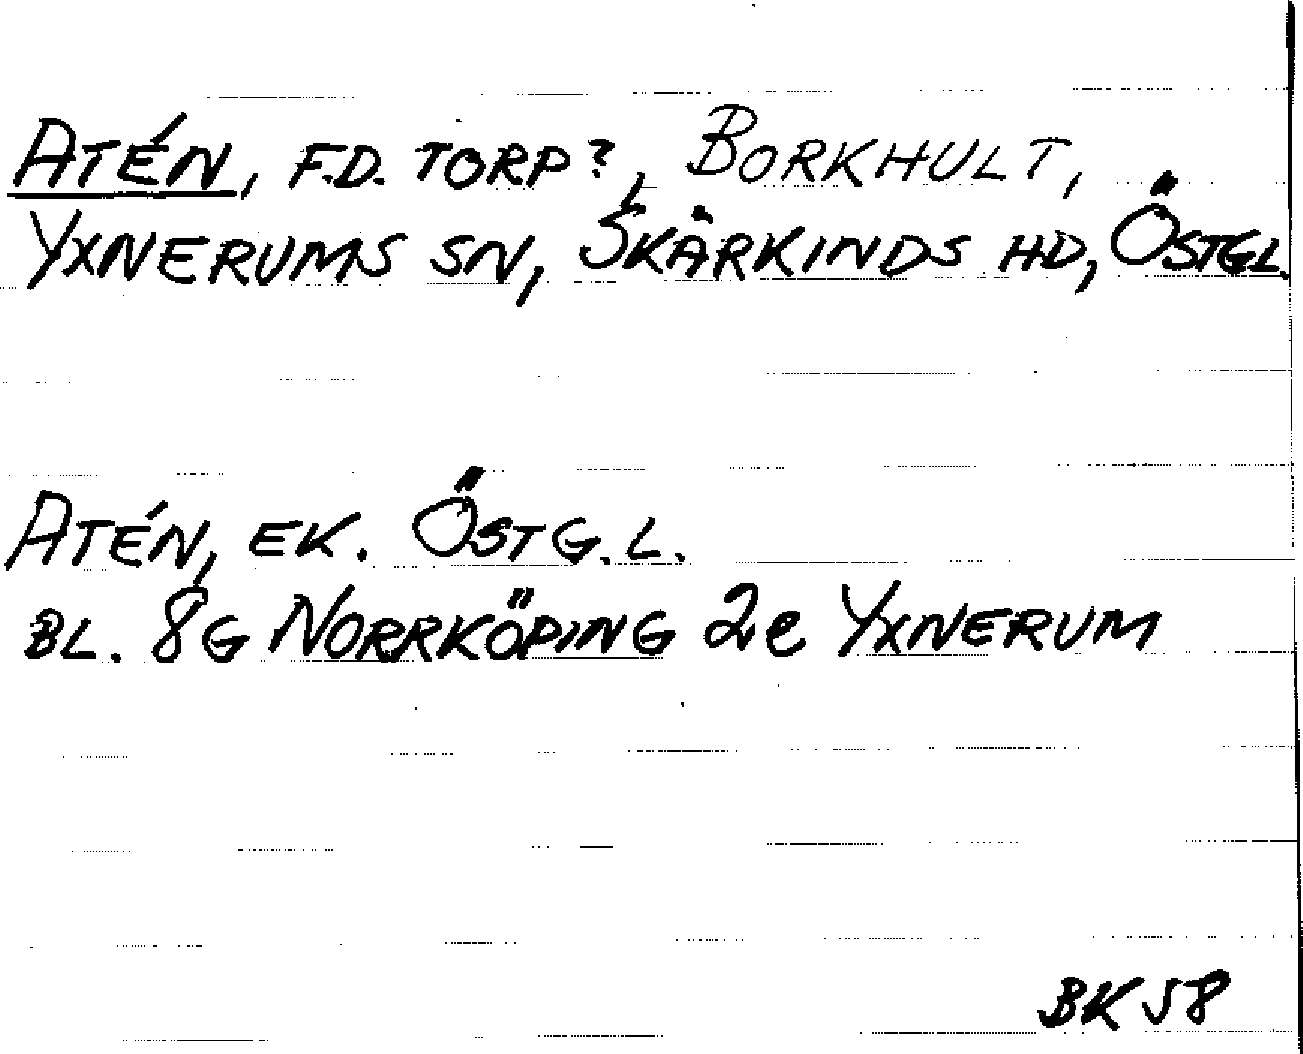 ATÉN, F.D. TORP?, BORKHULT,
YXNERUMS SN, SKÄRKINDS HD, ÖSTGL.
ATÉN, EK. ÖSTG.L.
BL. 8G NORRKÖPING 2e YXNERUM
BK 58